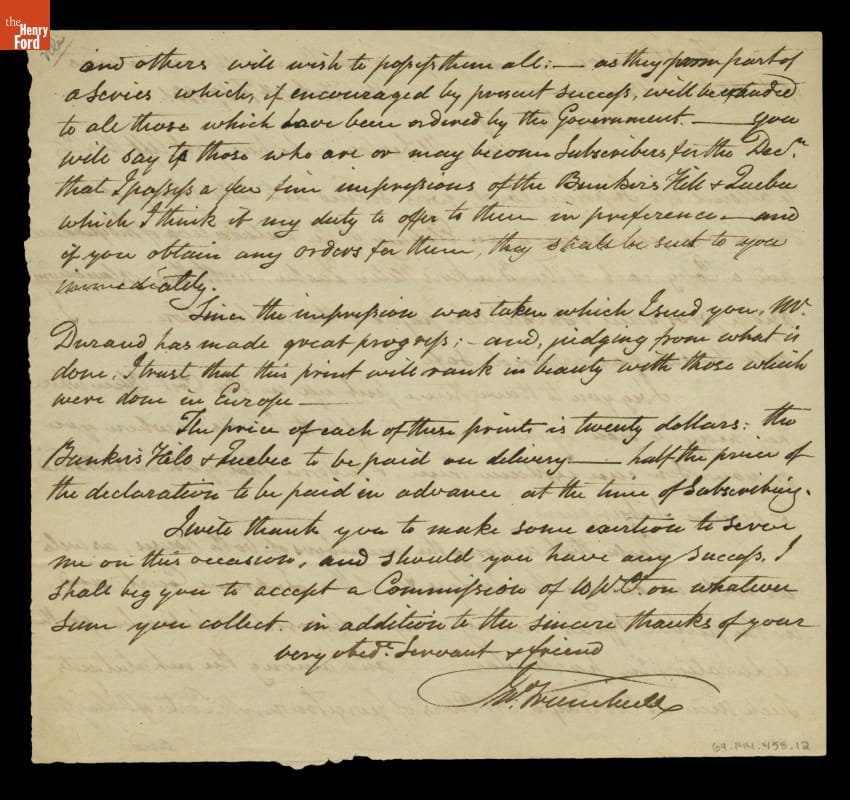 the
Henry
Ford
and others will wish to possess them all:— as they form part of
a Series which, if encouraged by present success, will be extended
to all those which have been ordered by the Government. — you
will say to those who are or may become Subscribers for the Decn.
that I possess a few fine impressions of the Bunker's Hill & Quebec
which I think it my duty to offer to them in preference — and
if you obtain any orders for them, they shall be sent to you
immediately.
Since the impression was taken which I send you, Mr.
Durand has made great progress; – and, judging from what is
done, I trust that this print will rank in beauty with those which
were done in Europe —
The price of each of these prints is twenty dollars: the
Bunker's Hill & Quebec to be paid on delivery — half the price of
the declaration to be paid in advance at the time of Subscribing.
I will thank you to make some exertion to serve
me on this occasion, and should you have any success, I
shall beg you to accept a Commission of 10 P Ct. on whatever
sum you collect. in addition to the sincere thanks of your
very obedt. Servant & friend
Jno. Trumbull
69.144.458.12